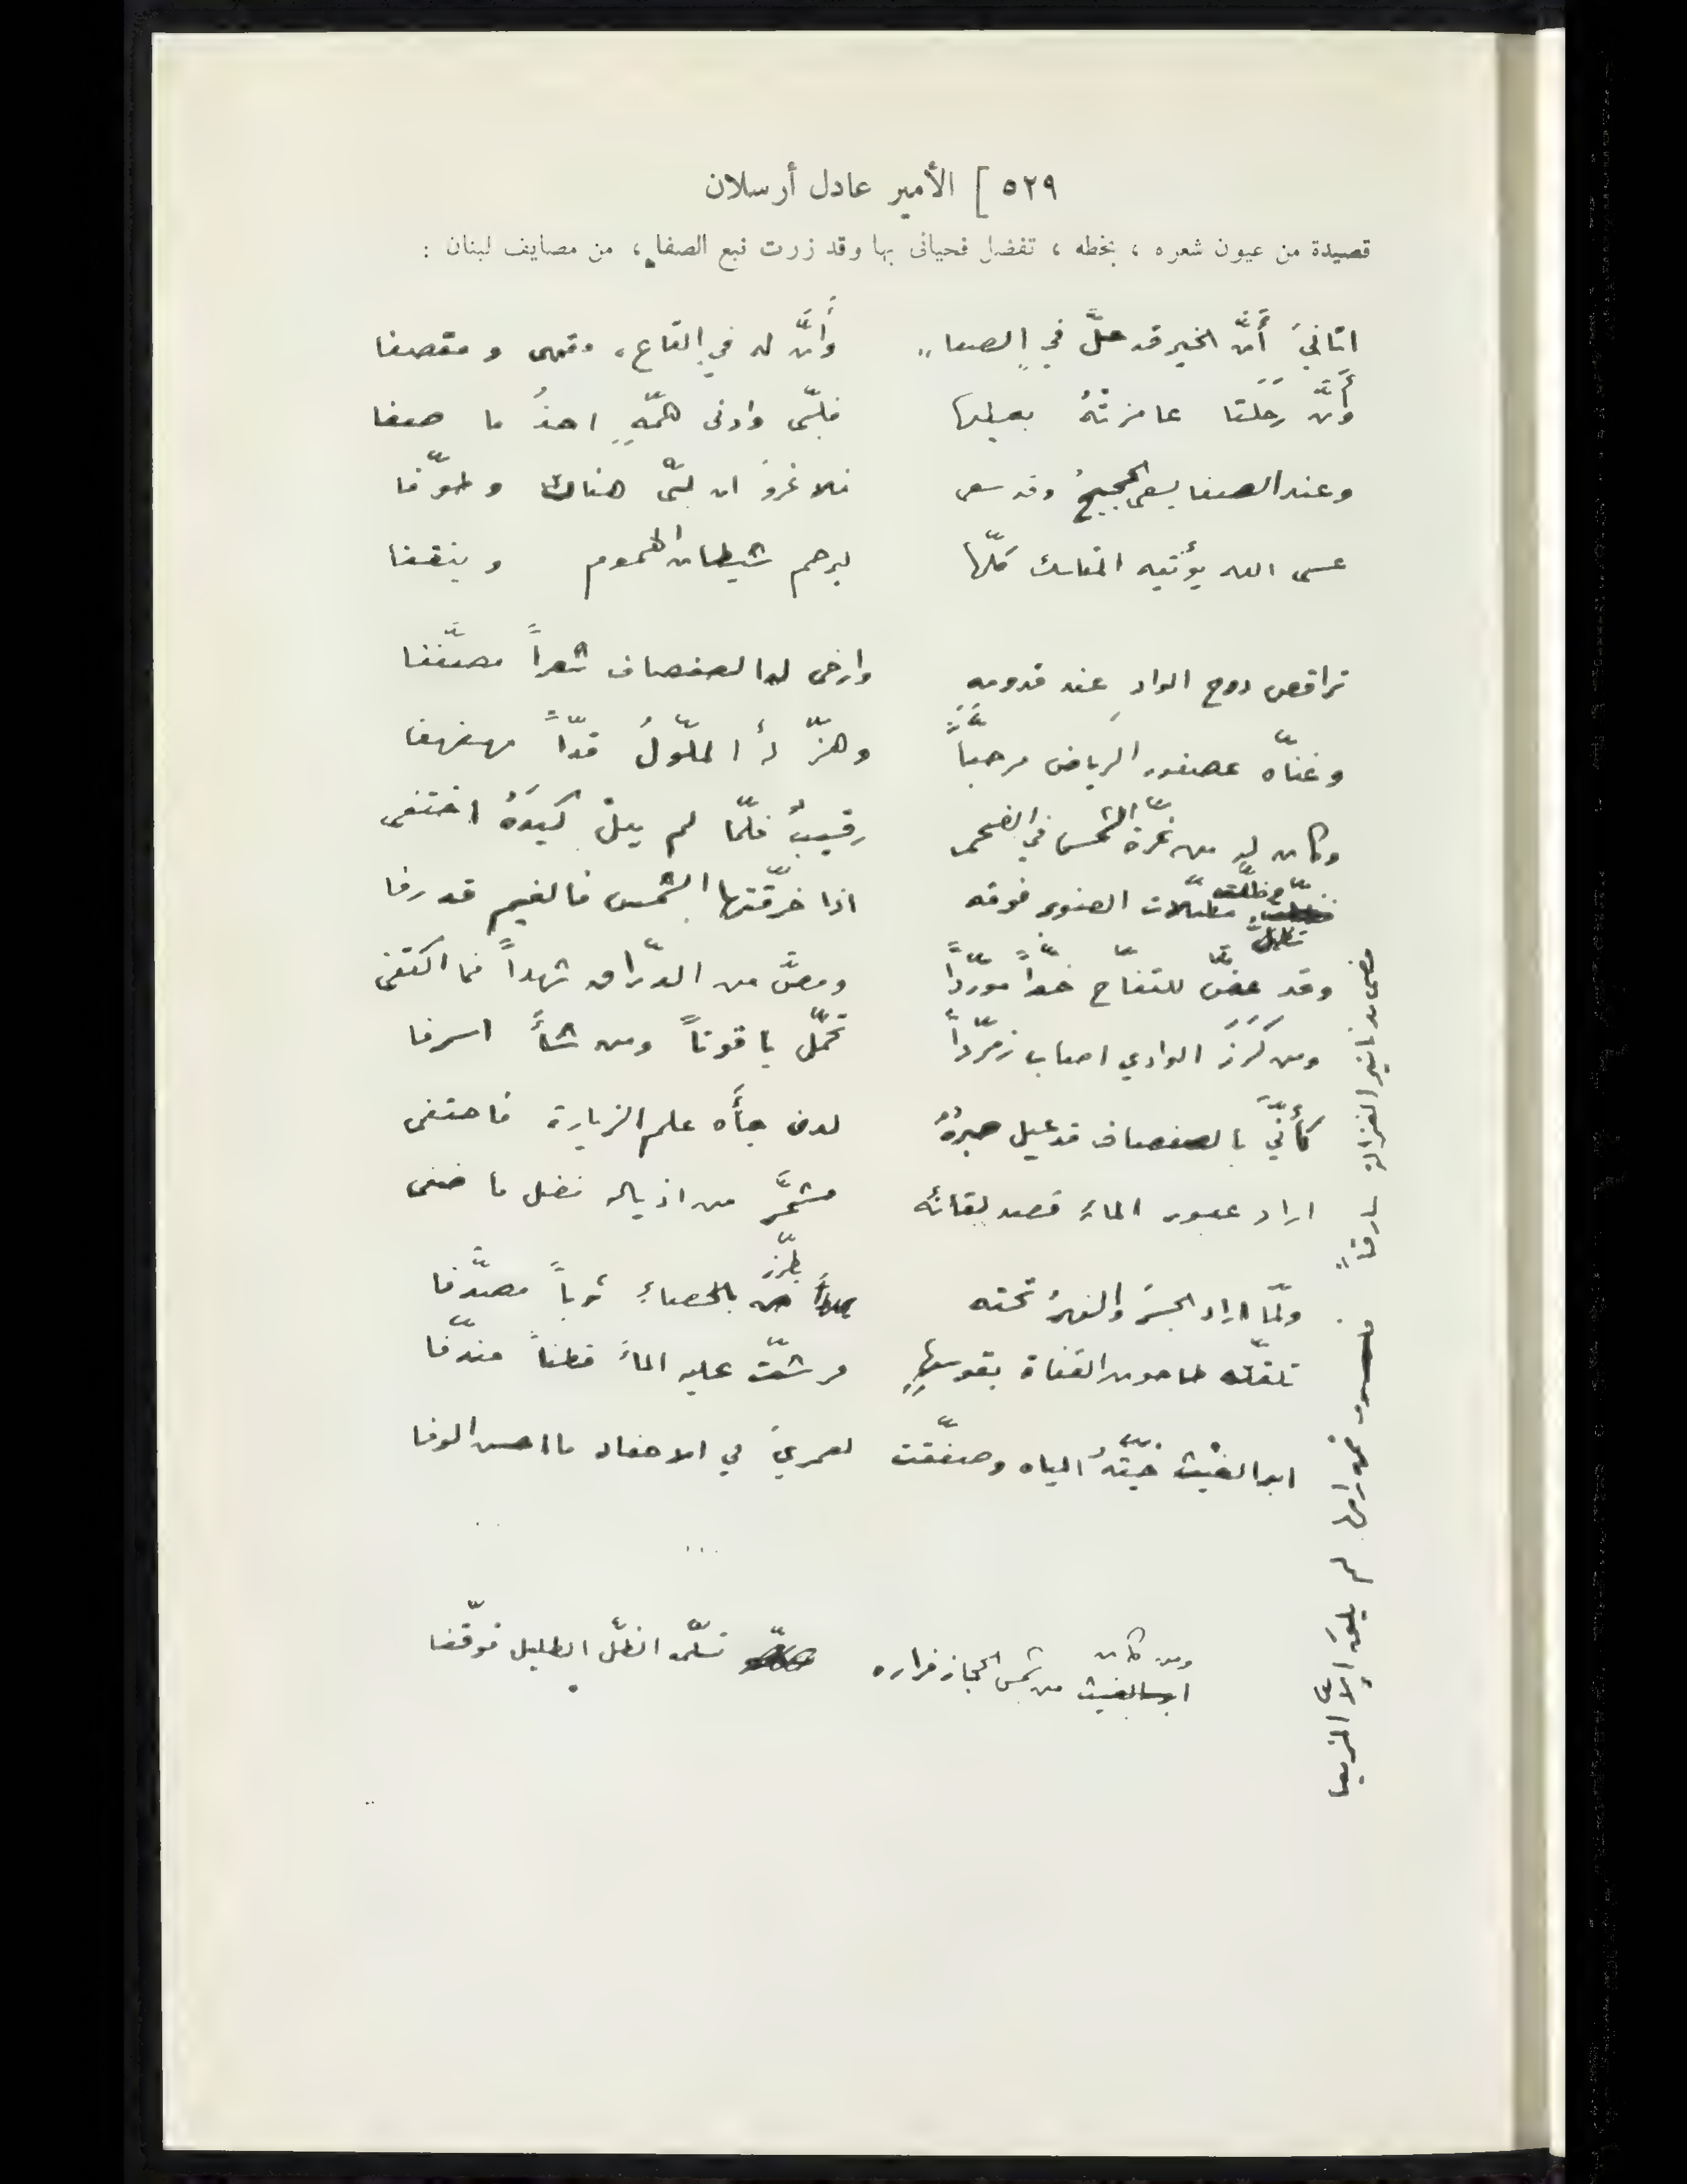 ٥٢٩ ] الأمير عادل أرسلان
قصيدة من عيون شعره ، بخطه ، تفضل فحيانى بها وقد زرت نبع الصفا ، من مصايف لبنان :
اتانيَ أنَّ الخير قد حلَّ في الصفا وأنَّ له في القاع، مقهى ومقصفا
وأنَّ رحلتا بعيليها فلبّى وادنى همّهِ اخذُ ما صفا
وعند الصفا يسعى الحجيجُ وقد سعى فلا غروَ ان لبّى هناك وطوّفا
عسى الله يؤتيه المناسك كلّها ليرجم شيطان الهموم وينقفا
تراقص دوح الوادِ عند قدومهِ وارخى له الصفصاف شعراً مصفَّفا
وغنّاه عصفور الرياض مرحبّاً وهزّ لهُ الملّولُ قدّاً مهفهفا
وكان له من غرّة الشمس في الضحى رقيبٌ فلمّا لم ينل كيدَهُ اختفى
مظلّات الصنوبر فوقه اذا خرّقتها الشمس فالغيم قد رفا
وقد عضّ للتفاح خدّاً مورّداً ومصَّ من الدرّاق شهداً فما اكتفى
ومن كَرَزِ الوادي اصاب زمرّداً تحمّل ياقوتاً ومن شأَ اسرفا
كأنّيَ بالصفصاف قد عيل صبرهُ لدن جأَه علم الزيارة فاحتفى
اراد عبور الماءِ قصد لقائه فشمَّر من اذياله فضل ما ضفى
ولمّا اراد الجسرَ والنهرُ تحته طرّز بالحصباءِ ثوباً مصدَّفا
تلقّته طاحون القناة بقوسها ورشّت عليه الماءَ قطناً مندّفا
ابو الغيث حيّتهُ المياه وصفّقت لعمريَ في الاحفاد ما احسن الوفا
ومن كان من شمس الحجاز فراره تسلّمه الظلّ الظليل فوقّفا
مضى بدنانير الغزالة سارقاً
فمن رامها لم يلقَ إلاّ المزيفا